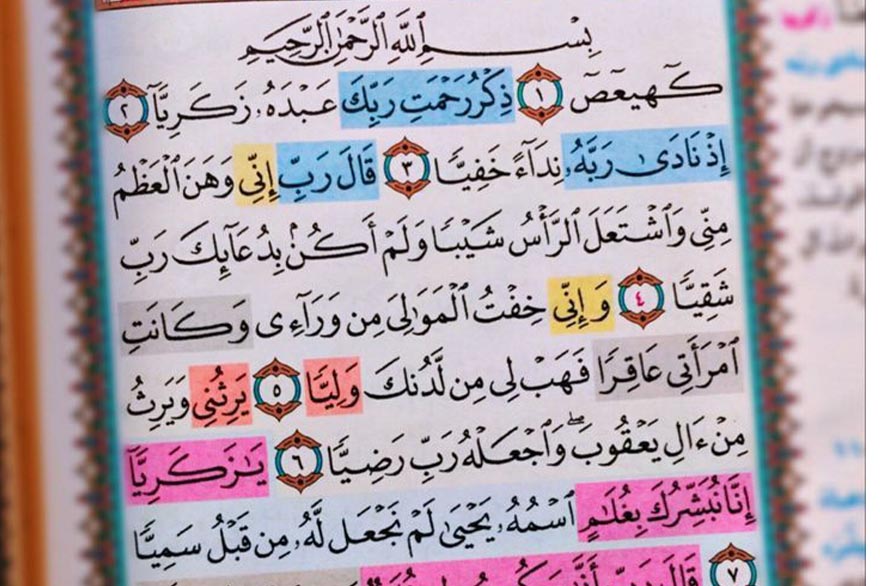 بِسْمِ ٱللَّهِ ٱلرَّحْمَٰنِ ٱلرَّحِيمِ
كٓهيعٓصٓ ١ ذِكْرُ رَحْمَتِ رَبِّكَ عَبْدَهُۥ زَكَرِيَّآ ٢
إِذْ نَادَىٰ رَبَّهُۥ نِدَآءً خَفِيًّا ٣ قَالَ رَبِّ إِنِّى وَهَنَ ٱلْعَظْمُ
مِنِّى وَٱشْتَعَلَ ٱلرَّأْسُ شَيْبًا وَلَمْ أَكُنۢ بِدُعَآئِكَ رَبِّ
شَقِيًّا ٤ وَإِنِّى خِفْتُ ٱلْمَوَٰلِىَ مِن وَرَآءِى وَكَانَتِ
ٱمْرَأَتِى عَاقِرًا فَهَبْ لِى مِن لَّدُنكَ وَلِيًّا ٥ يَرِثُنِى وَيَرِثُ
مِنْ ءَالِ يَعْقُوبَ ۖ وَٱجْعَلْهُ رَبِّ رَضِيًّا ٦ يَٰزَكَرِيَّآ
إِنَّا نُبَشِّرُكَ بِغُلَٰمٍ ٱسْمُهُۥ يَحْيَىٰ لَمْ نَجْعَل لَّهُۥ مِن قَبْلُ سَمِيًّا
٧ قَالَ رَبِّ